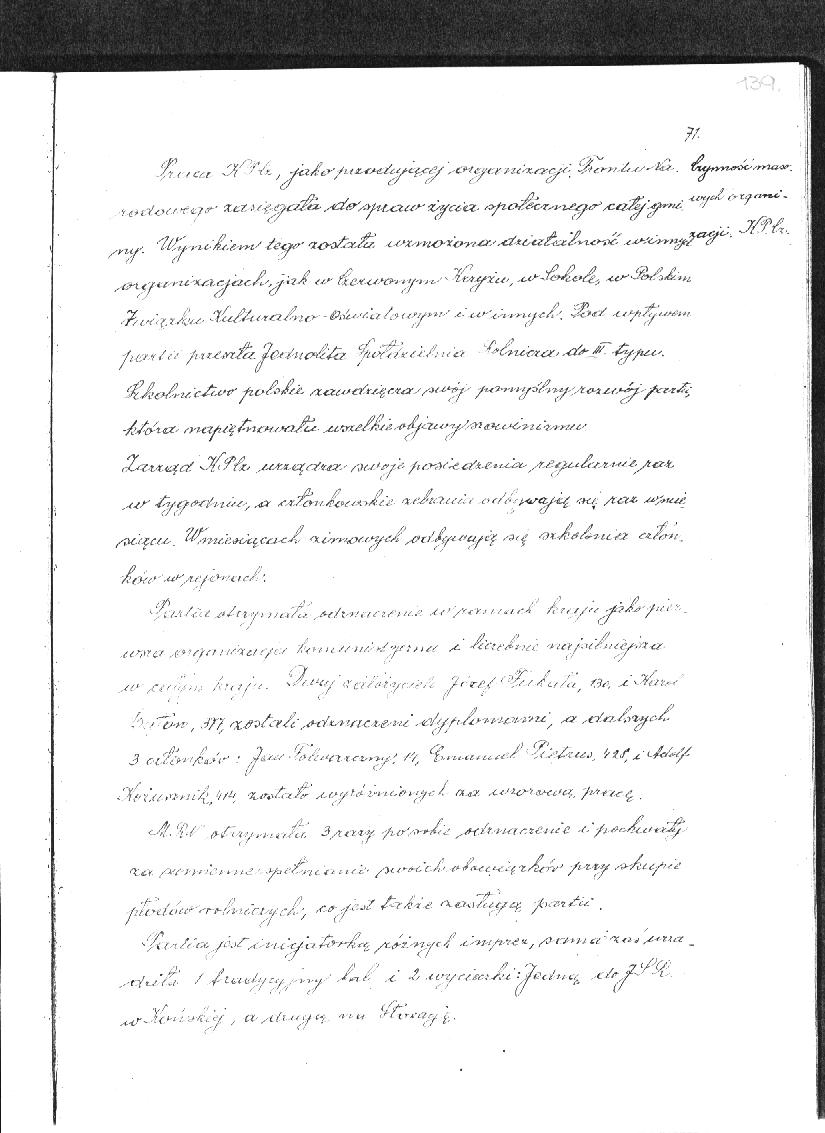 139.
71.
Praca KPCz, jako przodującej organizacji Frontu Na-
rodowego zasięgała do spraw życia społecznego całej gmi-
ny. Wynikiem tego została wzmożona działalność w innych
organizacjach, jak w Czerwonym Krzyżu, w Sokole, w Polskim
Związku Kulturalno-Oświatowym i w innych. Pod wpływem
partii przeszła Jednolita Spółdzielnia Rolnicza do III. typu.
Szkolnictwo polskie zawdzięcza swój pomyślny rozwój partii,
która napiętnowała wszelkie objawy szowinizmu
Zarząd KPCz urządza swoje posiedzenia regularnie raz
w tygodniu, a członkowskie zebrania odbywają się raz w mie-
siącu. W miesiącach zimowych odbywają się szkolenia człon-
ków w rejonach.
Partia otrzymała odznaczenie w ramach kraju jako pier-
wsza organizacja komunistyczna i liczebnie najsilniejsza
w całym kraju. Dwaj założyciele Józef Fukała, 130, i Karol
377, zostali odznaczeni dyplomami, a dalszych
3 członków: Jan Folwarczny, 14, Emanuel Pietrus, 428, i Adolf
Kożusznik, 414, zostało wyróżnionych za wzorową pracę.
M.R.N otrzymała 3 razy po sobie odznaczenie i pochwały
za sumienne spełnianie swoich obowiązków przy skupie
płodów rolniczych, co jest także zasługą partii.
Partia jest inicjatorką różnych imprez, sama zaś urzą-
dziła 1 tradycyjny bal i 2 wycieczki: Jedną do JSR
w Końskiej, a drugą na
Czynność maso-
wych organi-
zacji. KPCz.